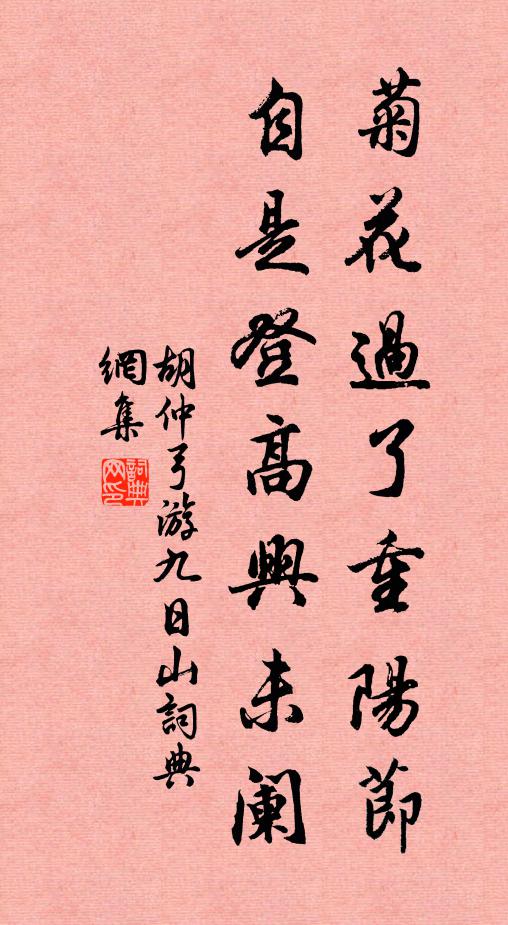 菊花過了重陽節
自是登高興未闌
胡仲弓游九日山詞典
網集
詞典
网印